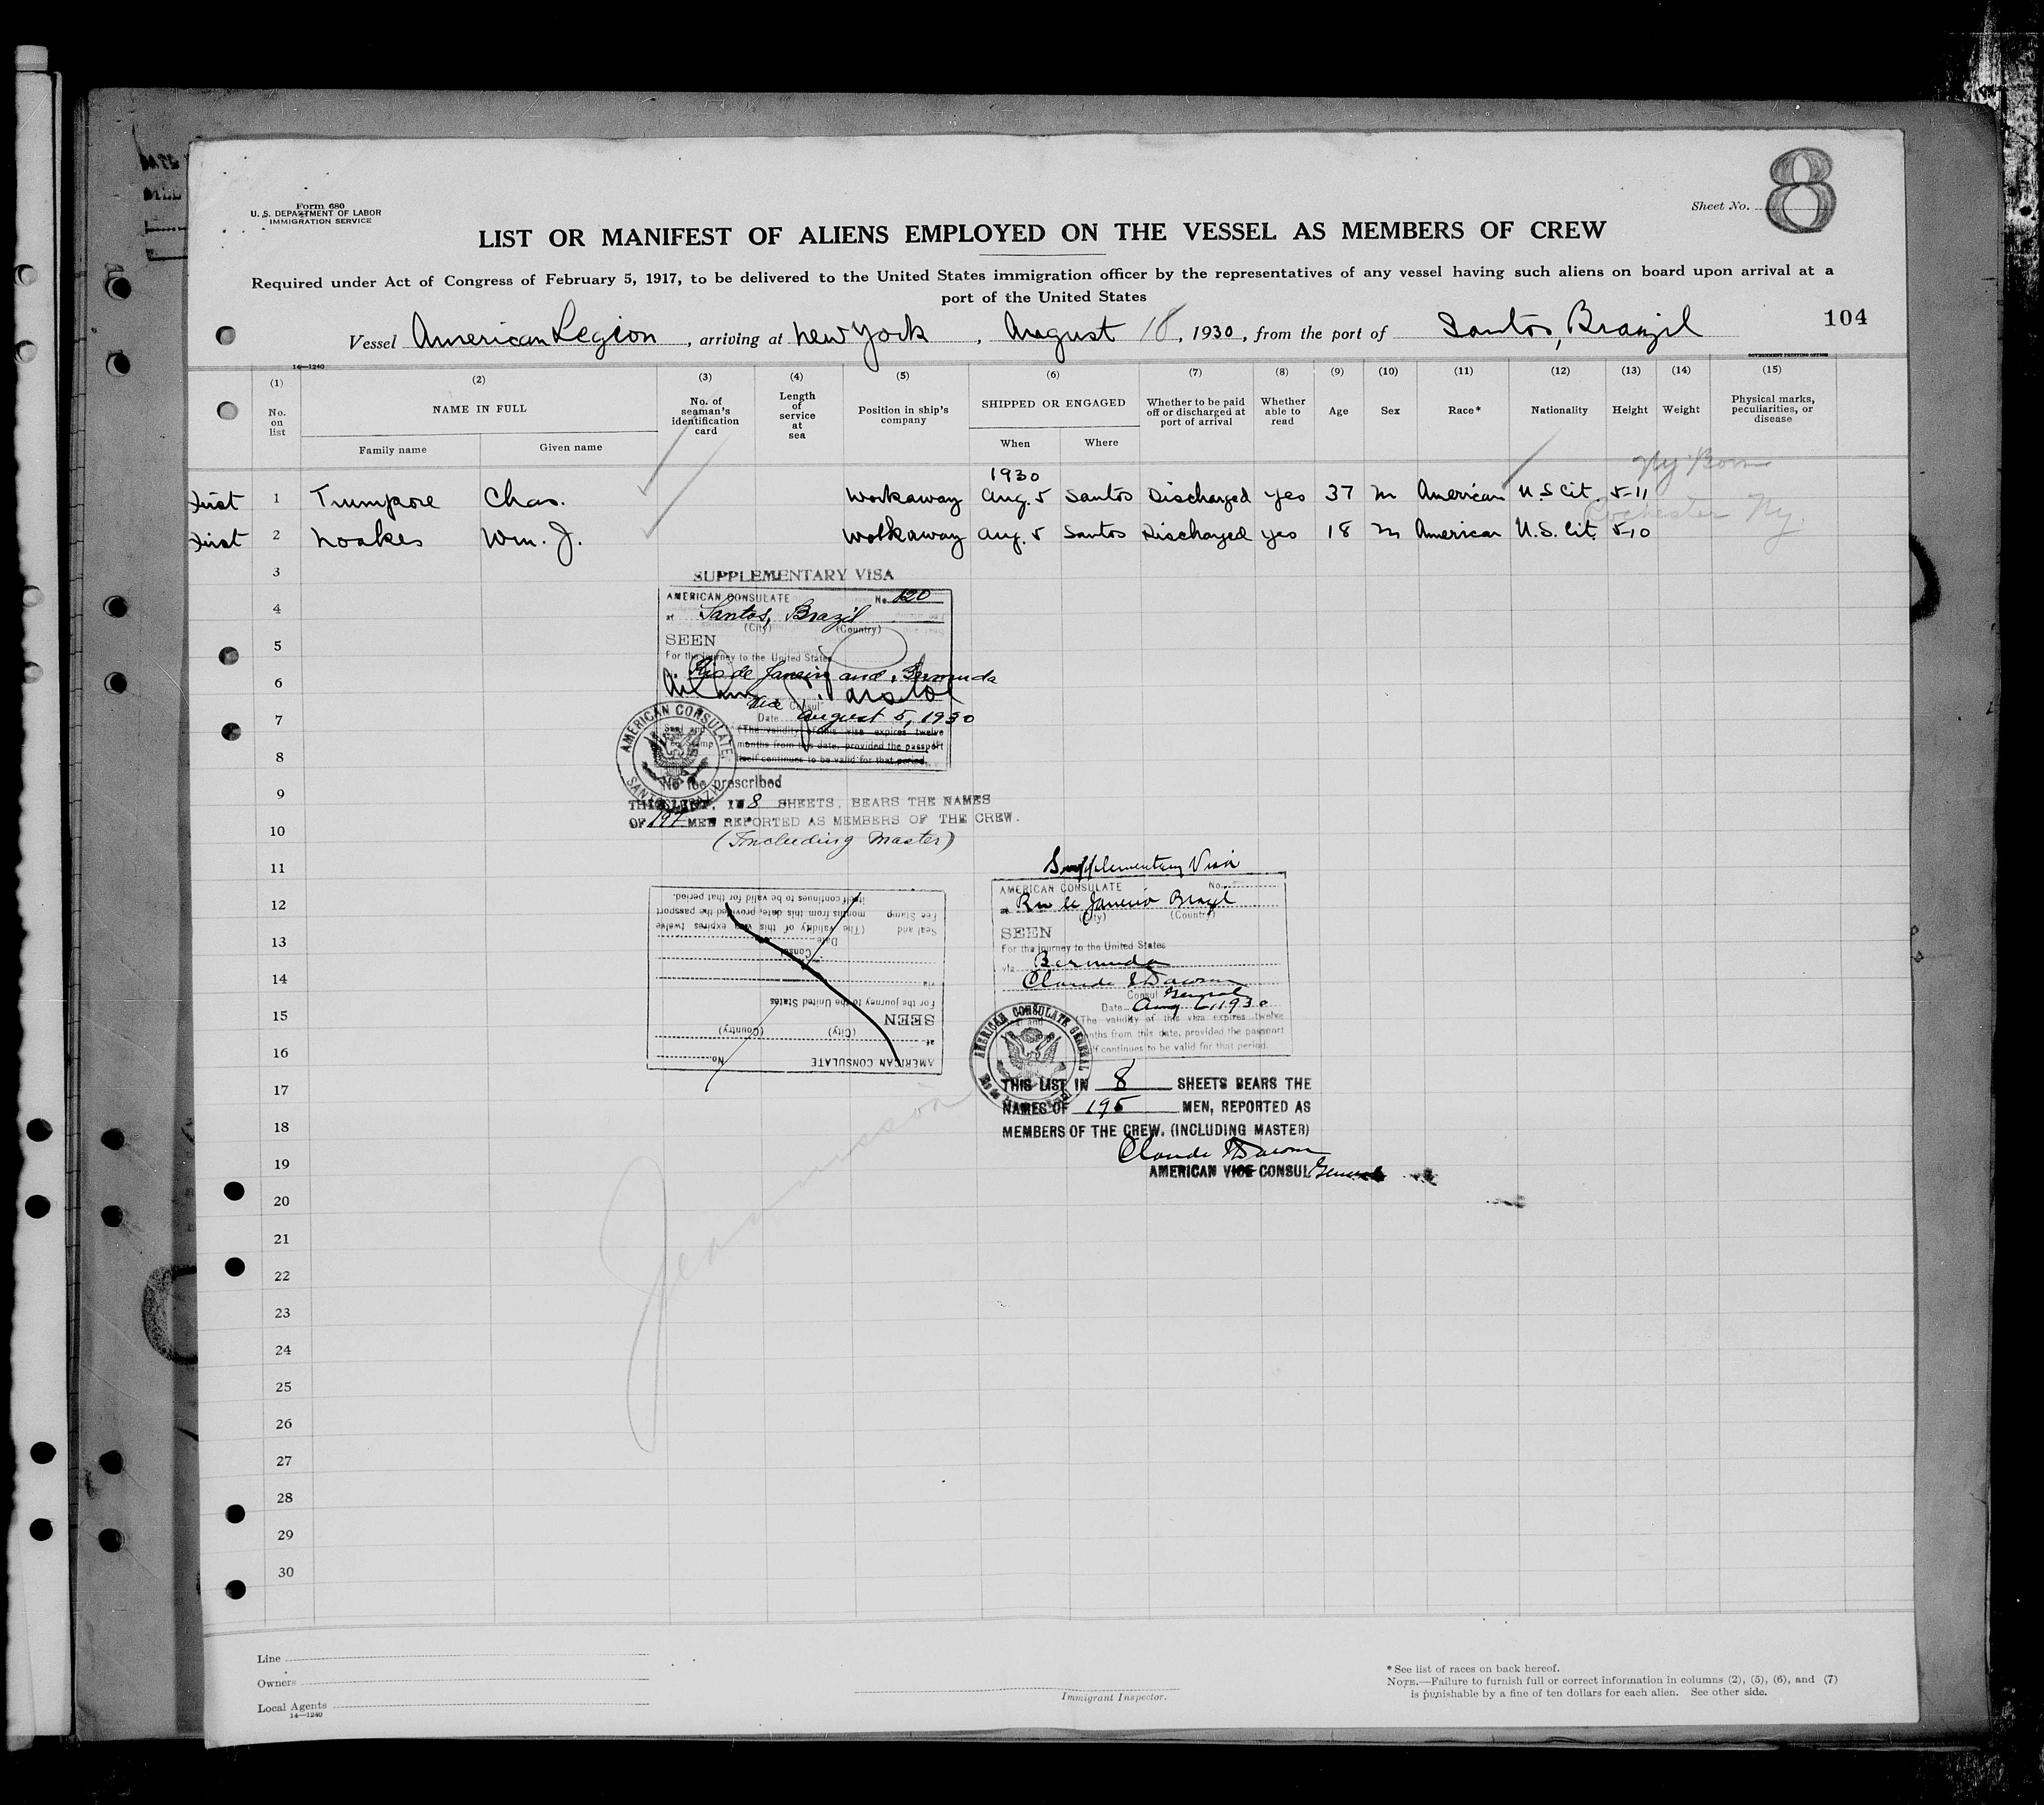 Form 680
U. S. DEPARTMENT OF LABOR
IMMIGRATION SERVICE
Sheet No. 8
LIST OR MANIFEST OF ALIENS EMPLOYED ON THE VESSEL AS MEMBERS OF CREW
Required under Act of Congress of February 5, 1917, to be delivered to the United States immigration officer by the representatives of any vessel having such aliens on board upon arrival at a
port of the United States
Vessel American Legion, arriving at New York, August 18, 1930, from the port of Santos, Brazil
104
14—1240
GOVERNMENT PRINTING OFFICE
(1) (2) (3) (4) (5) (6) (7) (8) (9) (10) (11) (12) (13) (14) (15)
No. on list NAME IN FULL No. of seaman's identification card Length of service at sea Position in ship's company SHIPPED OR ENGAGED Whether to be paid off or discharged at port of arrival Whether able to read Age Sex Race* Nationality Height Weight Physical marks, peculiarities, or disease
Family name Given name When Where
1930
Ny Born
First 1 Trumpore Chas. Workaway Aug. 5 Santos Discharged yes 37 m American U.S Cit. 5-11
Rochester Ny.
First 2 Noakes Wm. J. Workaway Aug. 5 Santos Discharged yes 18 m American U.S. Cit. 5-10
3
SUPPLEMENTARY VISA
AMERICAN CONSULATE No. 120
4
at Santos, Brazil
(City) (Country)
5
SEEN
For the journey to the United States
Rio de Janeiro and Bermuda
6
Vice Consul
7
Date August 5, 1930
Seal and
(The validity of this visa expires twelve
months from this date, provided the passport
itself continues to be valid for that period.
AMERICAN CONSULATE
SANTOS, BRAZIL
8
No fee prescribed
9
THIS LIST, IN 8 SHEETS, BEARS THE NAMES
OF 197 MEN REPORTED AS MEMBERS OF THE CREW.
10
(Including Master)
11
Supplementary Visa
AMERICAN CONSULATE No.
12
at Rio de Janeiro Brazil
(City) (Country)
SEEN
13
For the journey to the United States
via Bermuda
14
Claude
Consul General
Date Aug 6, 1930
15
(The validity of this visa expires twelve
months from this date, provided the passport
itself continues to be valid for that period.
AMERICAN CONSULATE GENERAL
AMERICAN CONSULATE No.
at
(City) (Country)
SEEN
For the journey to the United States
via
Consul
Date
Seal and Fee Stamp
(The validity of this visa expires twelve
months from this date, provided the passport
itself continues to be valid for that period.
16
17
THIS LIST IN 8 SHEETS BEARS THE
NAMES OF 195 MEN, REPORTED AS
18
MEMBERS OF THE CREW. (INCLUDING MASTER)
19
Claude
AMERICAN VICE CONSUL General
20
21
22
23
24
25
26
27
28
29
30
Line
Owners
Local Agents
14—1240
Immigrant Inspector.
* See list of races on back hereof.
NOTE.—Failure to furnish full or correct information in columns (2), (5), (6), and (7)
is punishable by a fine of ten dollars for each alien. See other side.